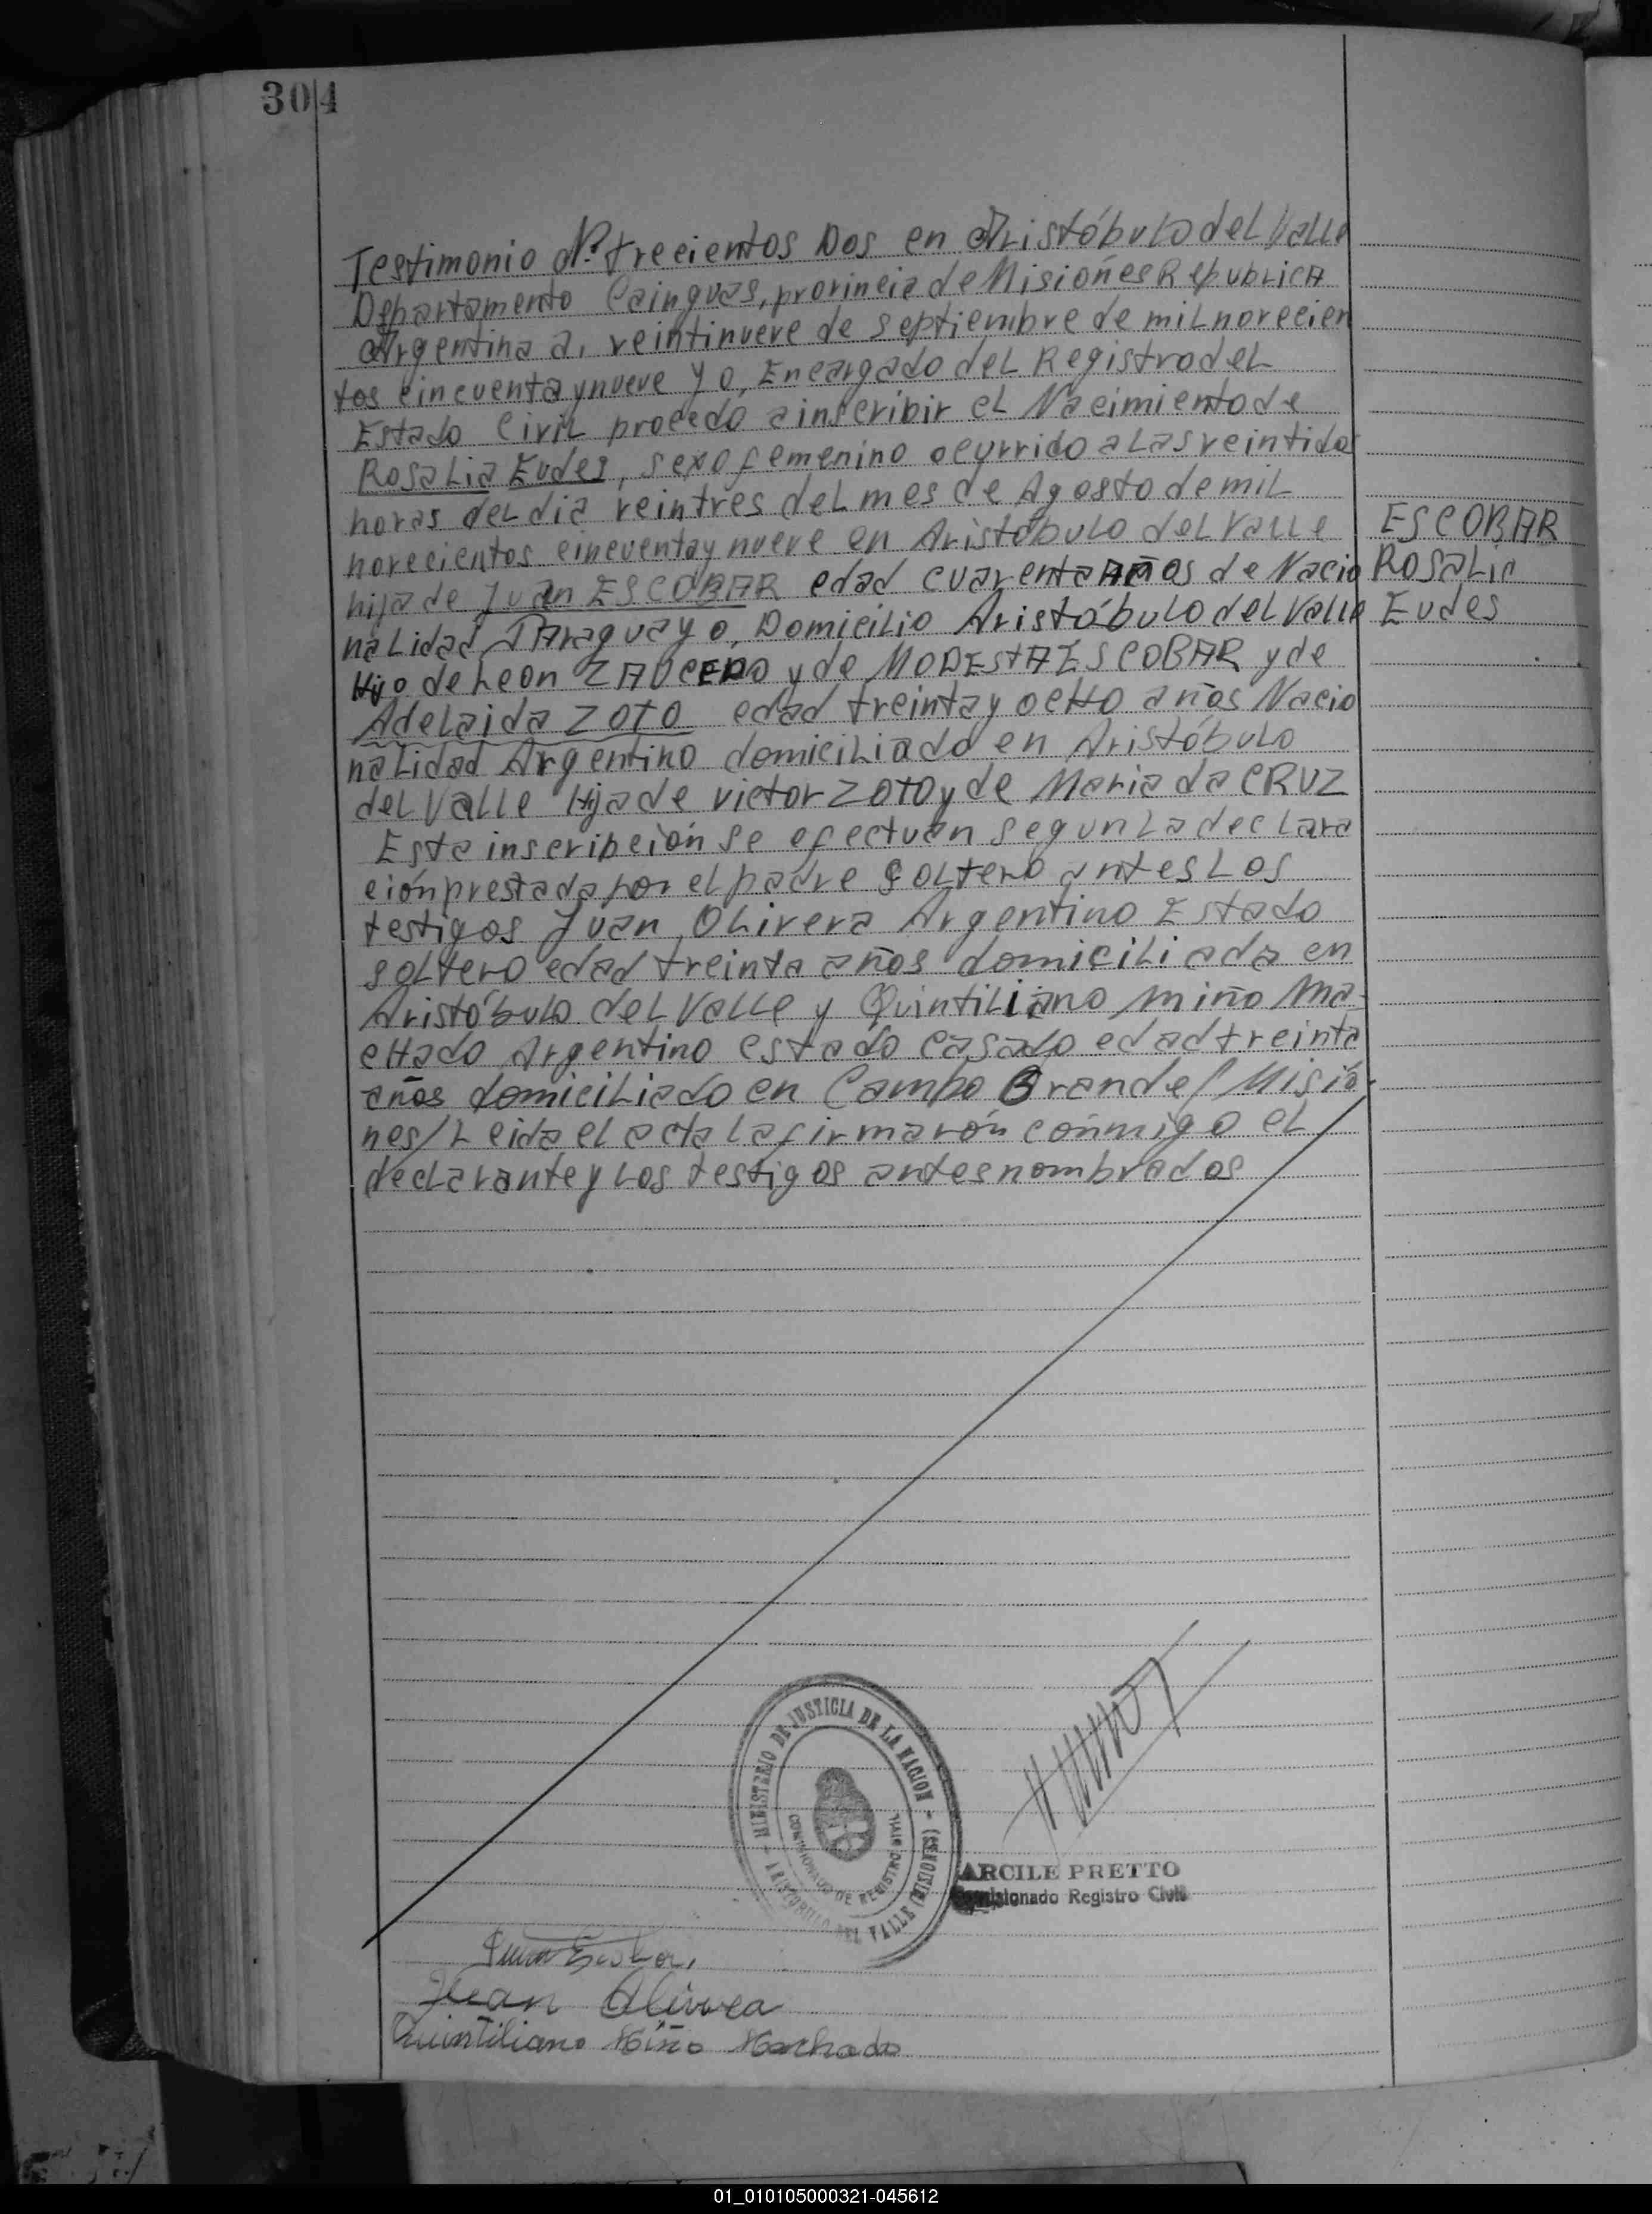 304
Testimonio Nº. trecientos Dos en Aristóbulo del Valle
Departamento Cainguas, provincia de Misiones Republica
Argentina a, veintinueve de septiembre de mil novecien
tos cincuenta y nueve Yo, Encargado del Registro del
Estado Civil procedo a inscribir el Nacimiento de
Rosalia Eudes, sexo femenino ocurrido a las veintidos
horas del dia veintres del mes de Agosto de mil
novecientos cincuenta y nueve en Aristóbulo del Valle
hija de Juan ESCOBAR edad cuarenta años de Nacio
nalidad Paraguayo, Domicilio Aristóbulo del Valle
Hijo de Leon ZAUCEDO y de MODESTA ESCOBAR y de
Adelaida ZOTO edad treinta y ocho años Nacio
nalidad Argentino domiciliado en Aristóbulo
del Valle Hija de victor ZOTO y de Maria da CRUZ
Esta inscripción se efectuan segun la declara
ción prestada por el padre soltero antes Los
testigos Juan Olivera Argentino Estado
soltero edad treinta años domiciliada en
Aristóbulo del Valle y Quintiliano Miño Ma-
chado Argentino estado casado edad treinta
años domiciliado en Campo Grande/ Misio
nes/ Leida el acta la firmarón conmigo el
declarante y los testigos antes nombrados
ESCOBAR
Rosalia
Eudes
MINISTERIO DE JUSTICIA DE LA NACION - (MISIONES)
ARISTOBULO DEL VALLE
COMISIONADO DE REGISTRO CIVIL
ARCILE PRETTO
Comisionado Registro Civil
Juan Escobar
Juan Olivera
Quintiliano Miño Machado
01_010105000321-045612